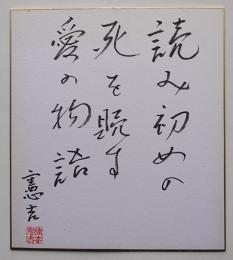 読み初めの
死を賭す
愛の物語
憲吉